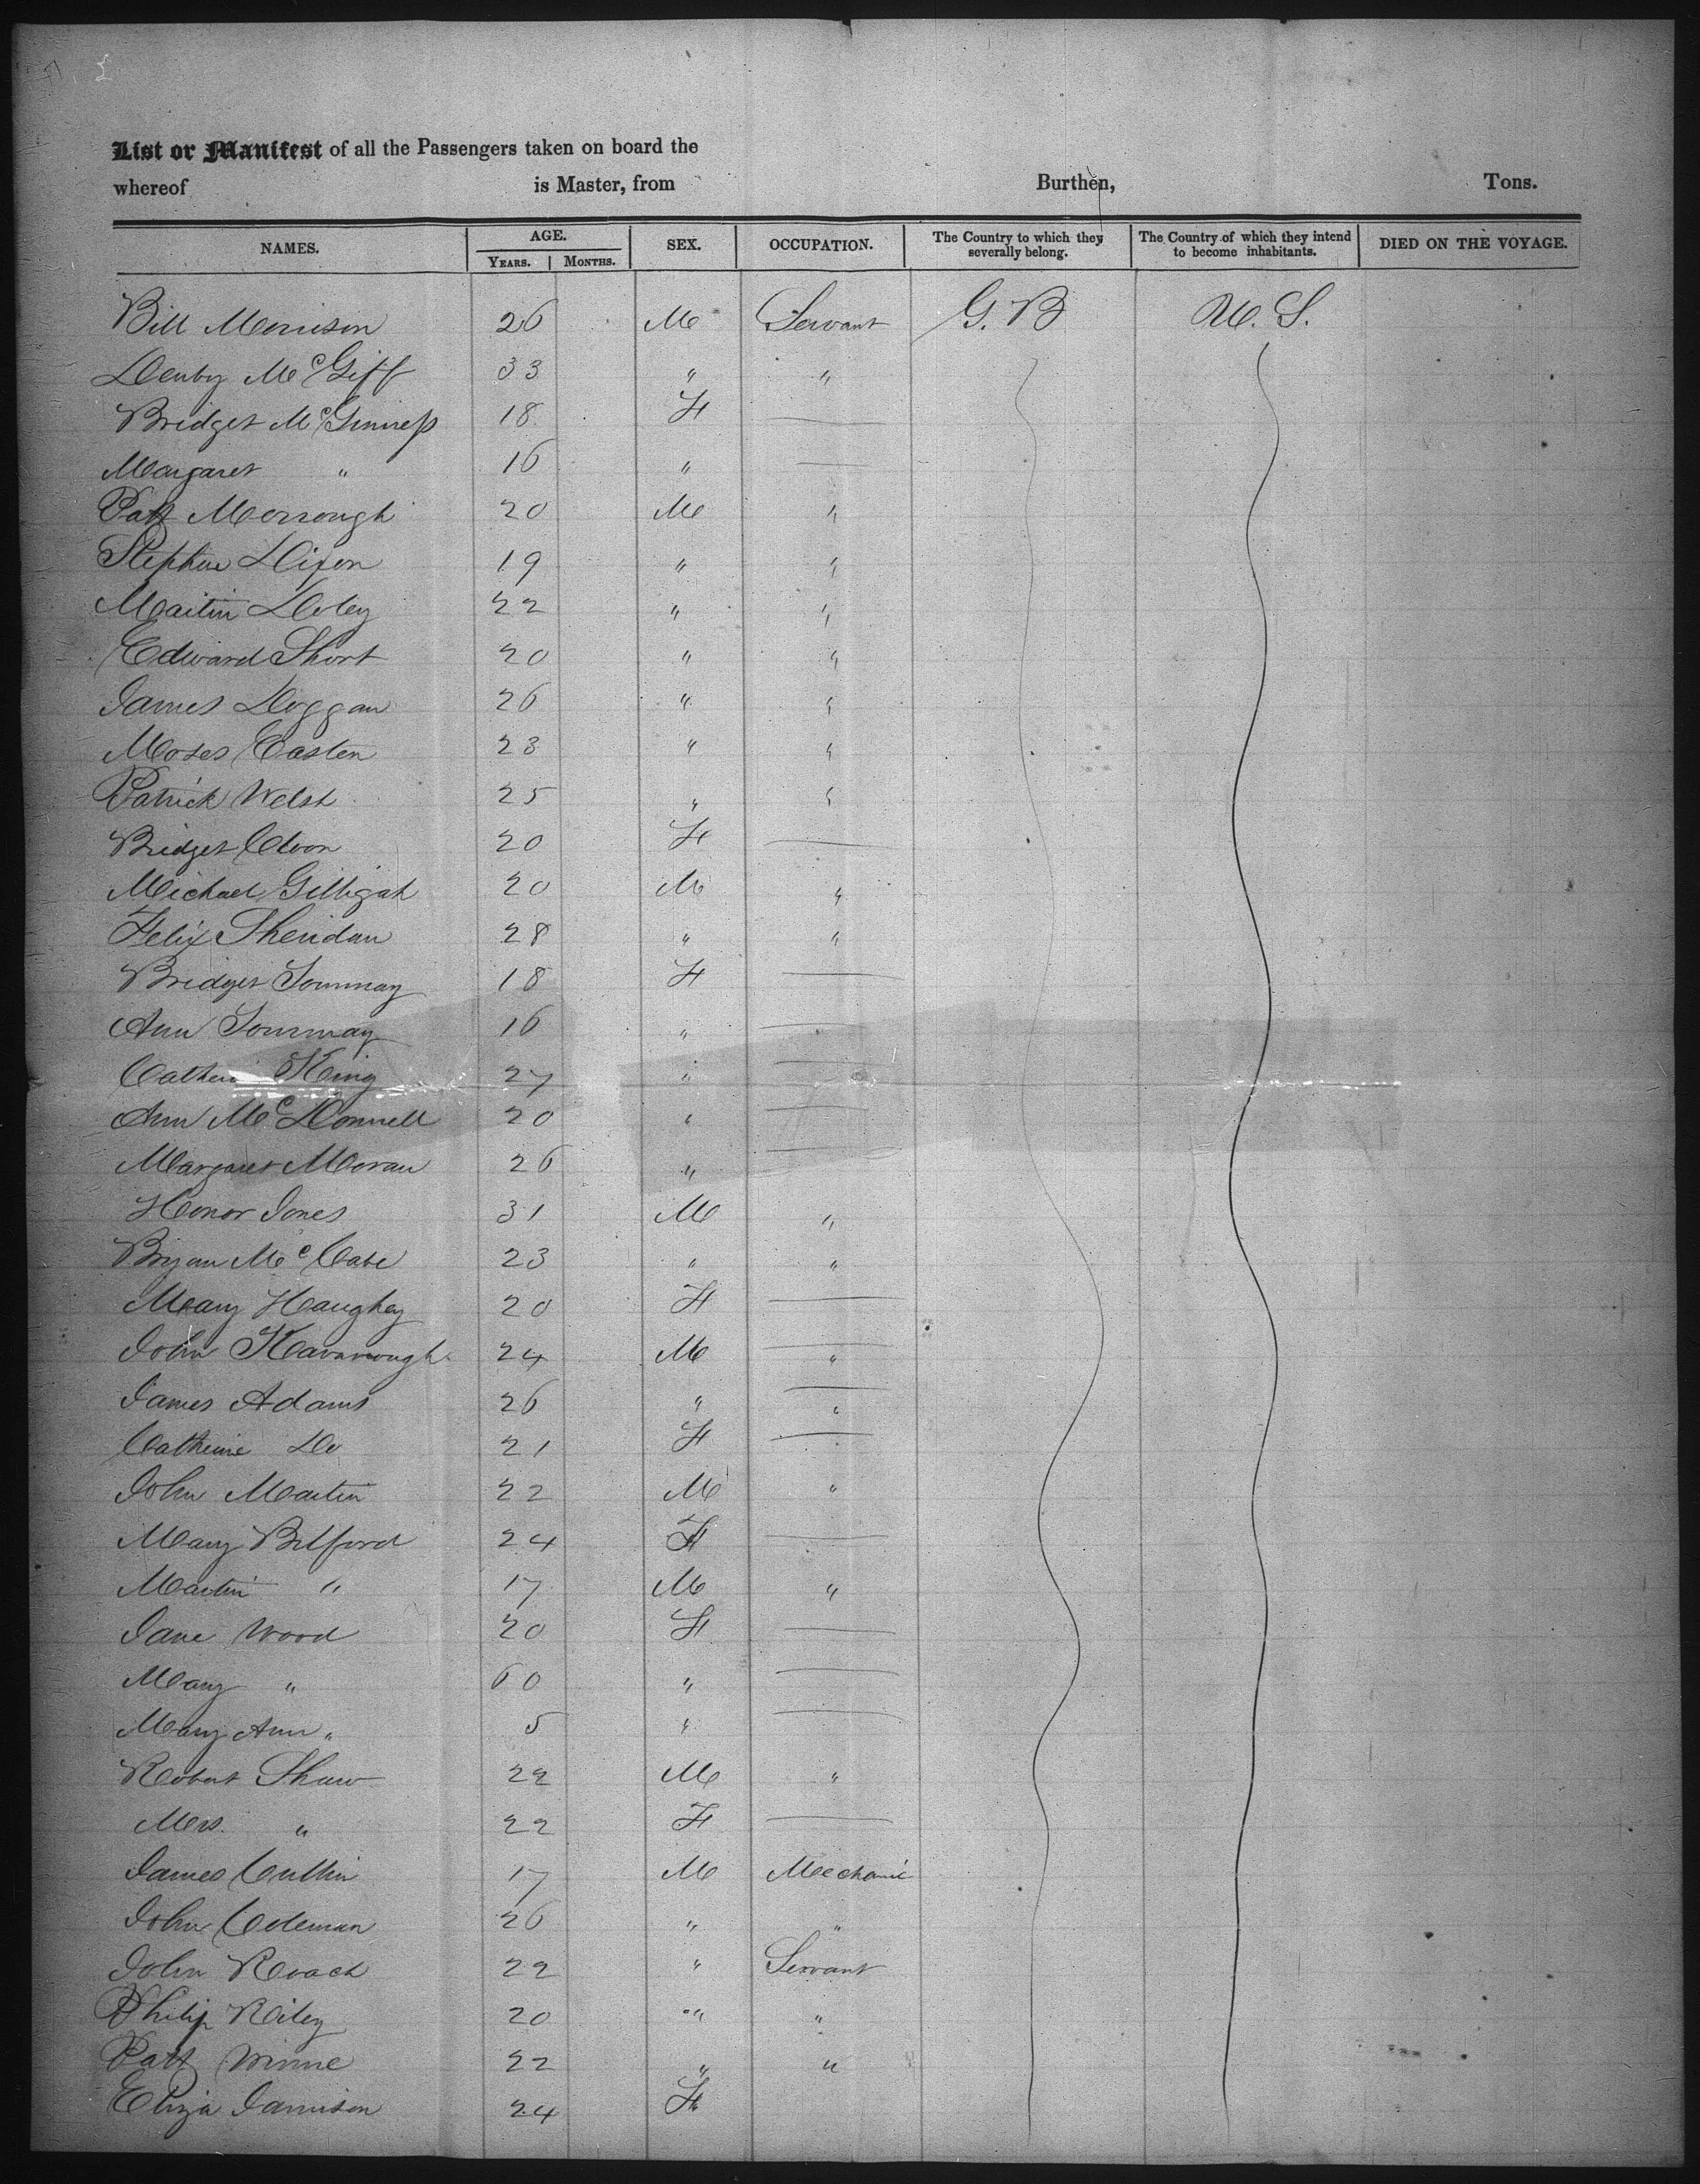 List or Manifest of all the Passengers taken on board the
whereof is Master, from Burthen, Tons.
NAMES. AGE. YEARS. MONTHS. SEX. OCCUPATION. The Country to which they severally belong. The Country of which they intend to become inhabitants. DIED ON THE VOYAGE.
Bill Morrison 26 M Servant G. B U. S.
Denby McGiff 33 " "
Bridget McGinness 18 F —
Margaret " 16 " —
Patt Morrough 20 M "
Stephen Dixon 19 " "
Martin Doley 22 " "
Edward Short 20 " "
James Doggan 26 " "
Moses Easten 23 " "
Patrick Welsh 25 " "
Bridget 20 F —
Michael Gilligah 20 M "
Felix Sheridan 28 " "
Bridget 18 F —
Ann 16 " —
King 27 " —
Ann McDonnell 20 " —
Margaret Moran 26 " —
Honor Jones 31 M "
Bryan McCabe 23 " "
Mary Haughey 20 F —
John Kavanough 24 M "
James Adams 26 " "
Catherine Do 21 F —
John Martin 22 M "
Mary Bilford 24 F —
Martin " 17 M "
Jane Wood 20 F —
Mary " 60 " —
Mary Ann " 5 " —
Robert Shaw 22 M "
Mrs. " 22 F —
James Cullin 17 M Mechanic
John Coleman 26 " "
John Roach 22 " Servant
Philip Riley 20 " "
Patt Winne 22 " "
Eliza Jamison 24 F